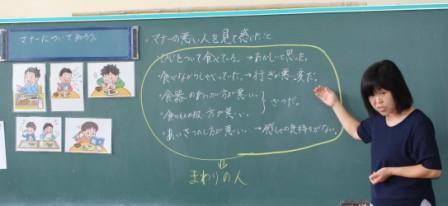 マナーについて知ろう。
・マナーの悪い人を見て感じたこと
・ひじをついて食べている。→おかしいと思った。
・食べながらしゃべっていた。→行ぎが悪い
・食器の 方が悪い。
・食べ方が悪い。
・あいさつのし方が悪い。→感しゃの気持ちがない。
まわりの人